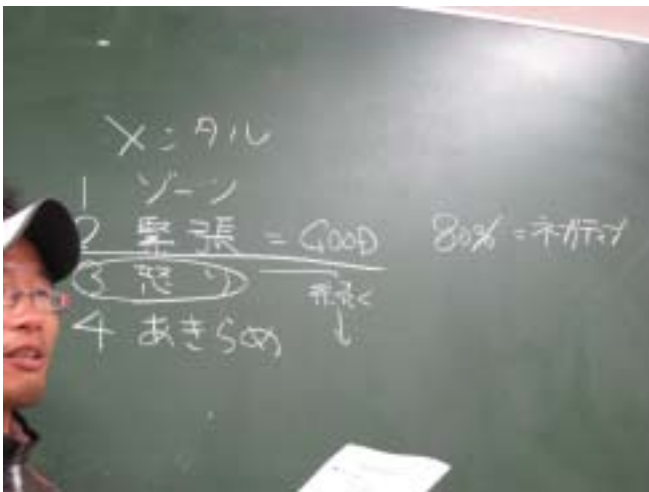 メンタル
1 ゾーン
2 緊張 = GOOD 80% = ネガティブ
3 怒り
4 あきらめ